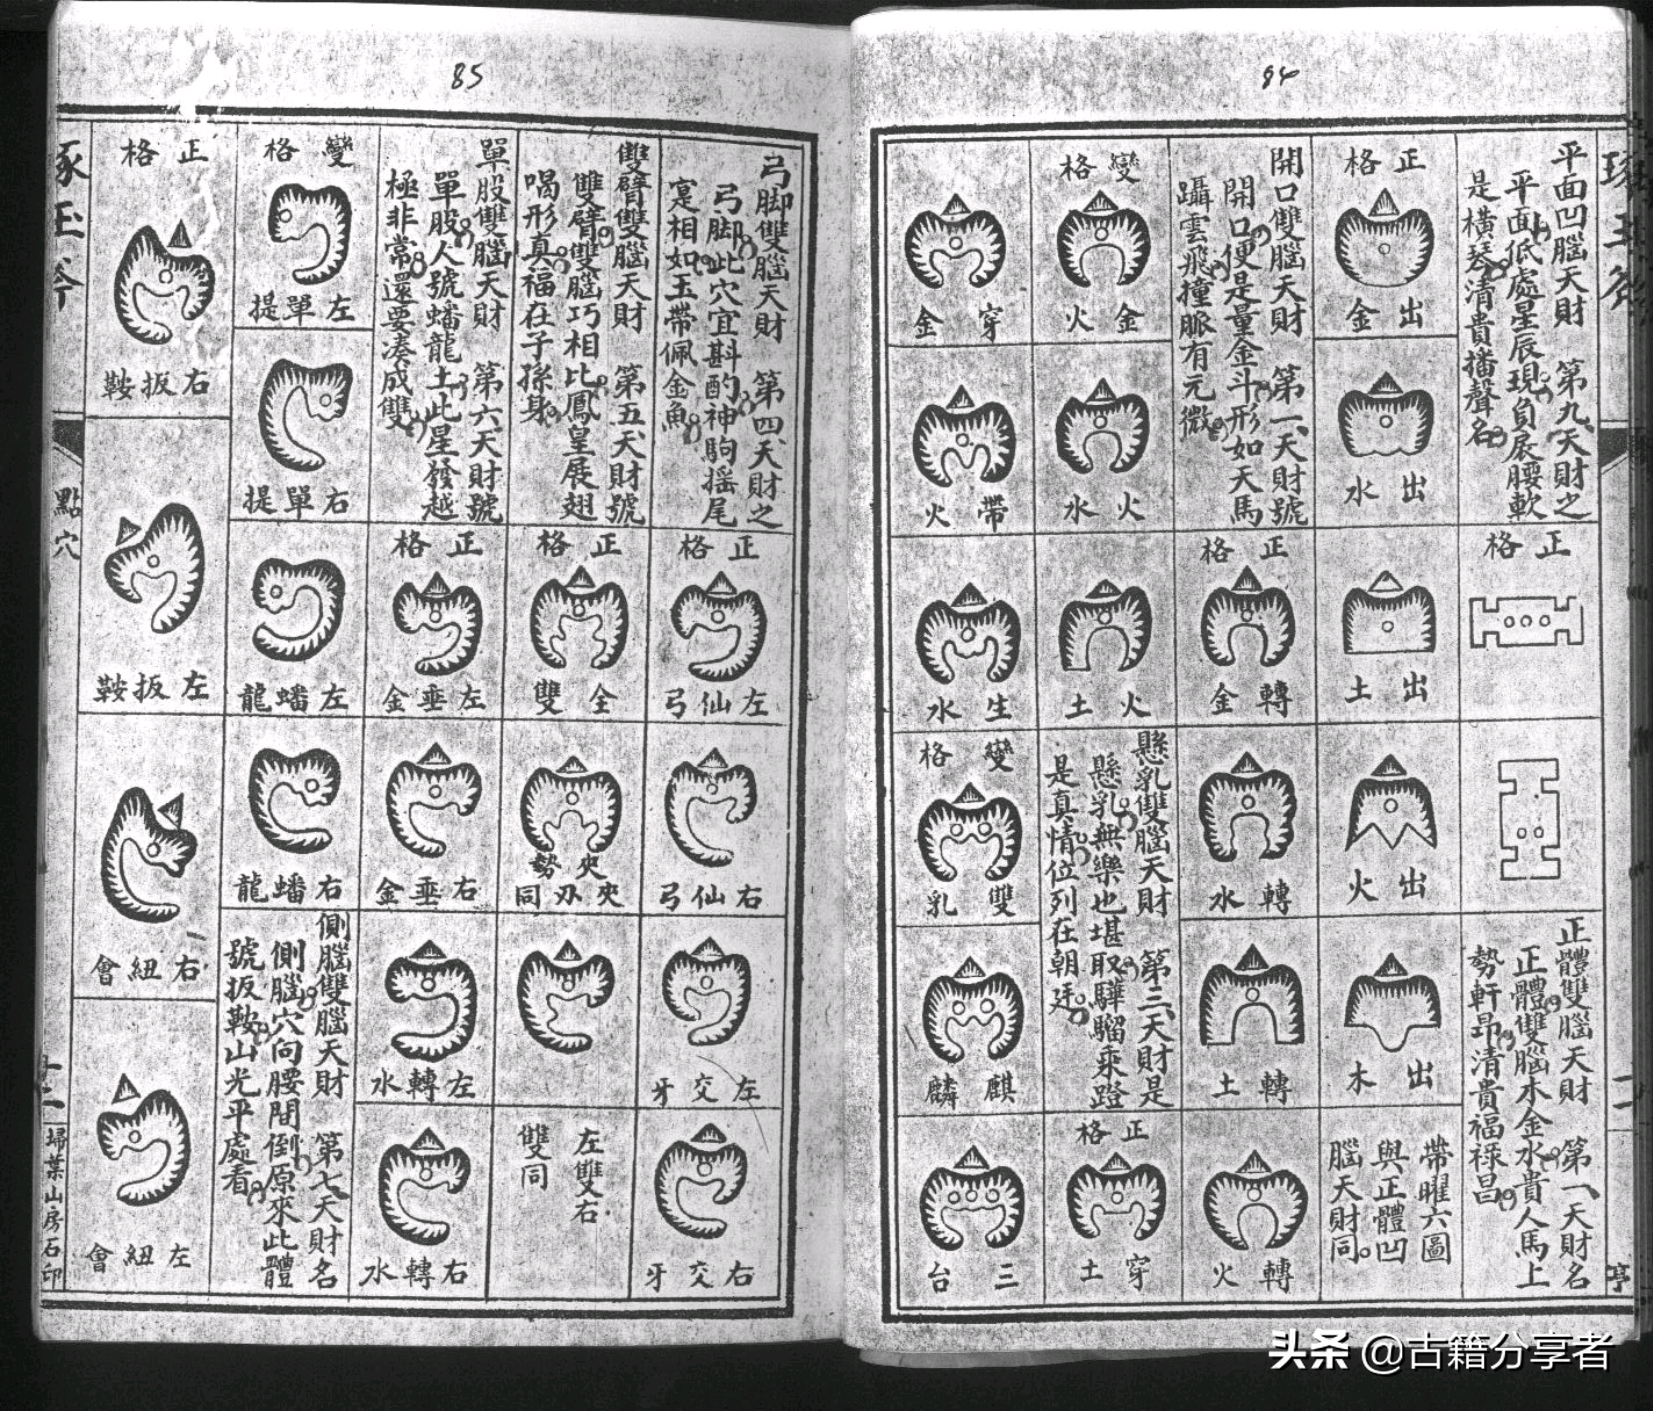 84
平面凹腦天財　第九、天財之
平面低處星辰現負扆腰軟
是橫琴清貴播聲名
正格
正體雙腦天財　第一、天財名
正體雙腦木金水貴人馬上
勢軒昂清貴福祿昌
正格
出金
出水
出土
出火
出木
帶曜六圖
與正體凹
腦天財同
開口雙腦天財　第一、天財號
開口便是量金斗形如天馬
躡雲飛撞脈有元微
正格
轉金
轉水
轉土
轉火
變格
金火
火水
火土
懸乳雙腦天財　第三、天財是
懸乳無樂也堪取驊騮乘蹬
是真情位列在朝廷
正格
穿土
穿金
帶火
生水
變格
雙乳
麒麟
三台
亨
85
弓脚雙腦天財　第四、天財之
弓脚此穴宜斟酌神駒搖尾
寔相如玉帶佩金魚
正格
左仙弓
右仙弓
左交牙
右交牙
雙臂雙腦天財　第五、天財號
雙臂雙腦巧相比鳳皇展翅
喝形真福在子孫身
正格
全雙
夾勢
同
左雙右
雙同
單股雙腦天財　第六、天財號
單股人號蟠龍土此星發越
極非常還要湊成雙
正格
左垂金
右垂金
左轉水
右轉水
變格
左單提
右單提
左蟠龍
右蟠龍
側腦雙腦天財　第七、天財名
側腦穴向腰間倒原來此體
號扳鞍山光平處看
正格
右扳鞍
左扳鞍
右紐會
左紐會
琢玉斧
點穴
十二
埽葉山房石印
头条 @古籍分享者